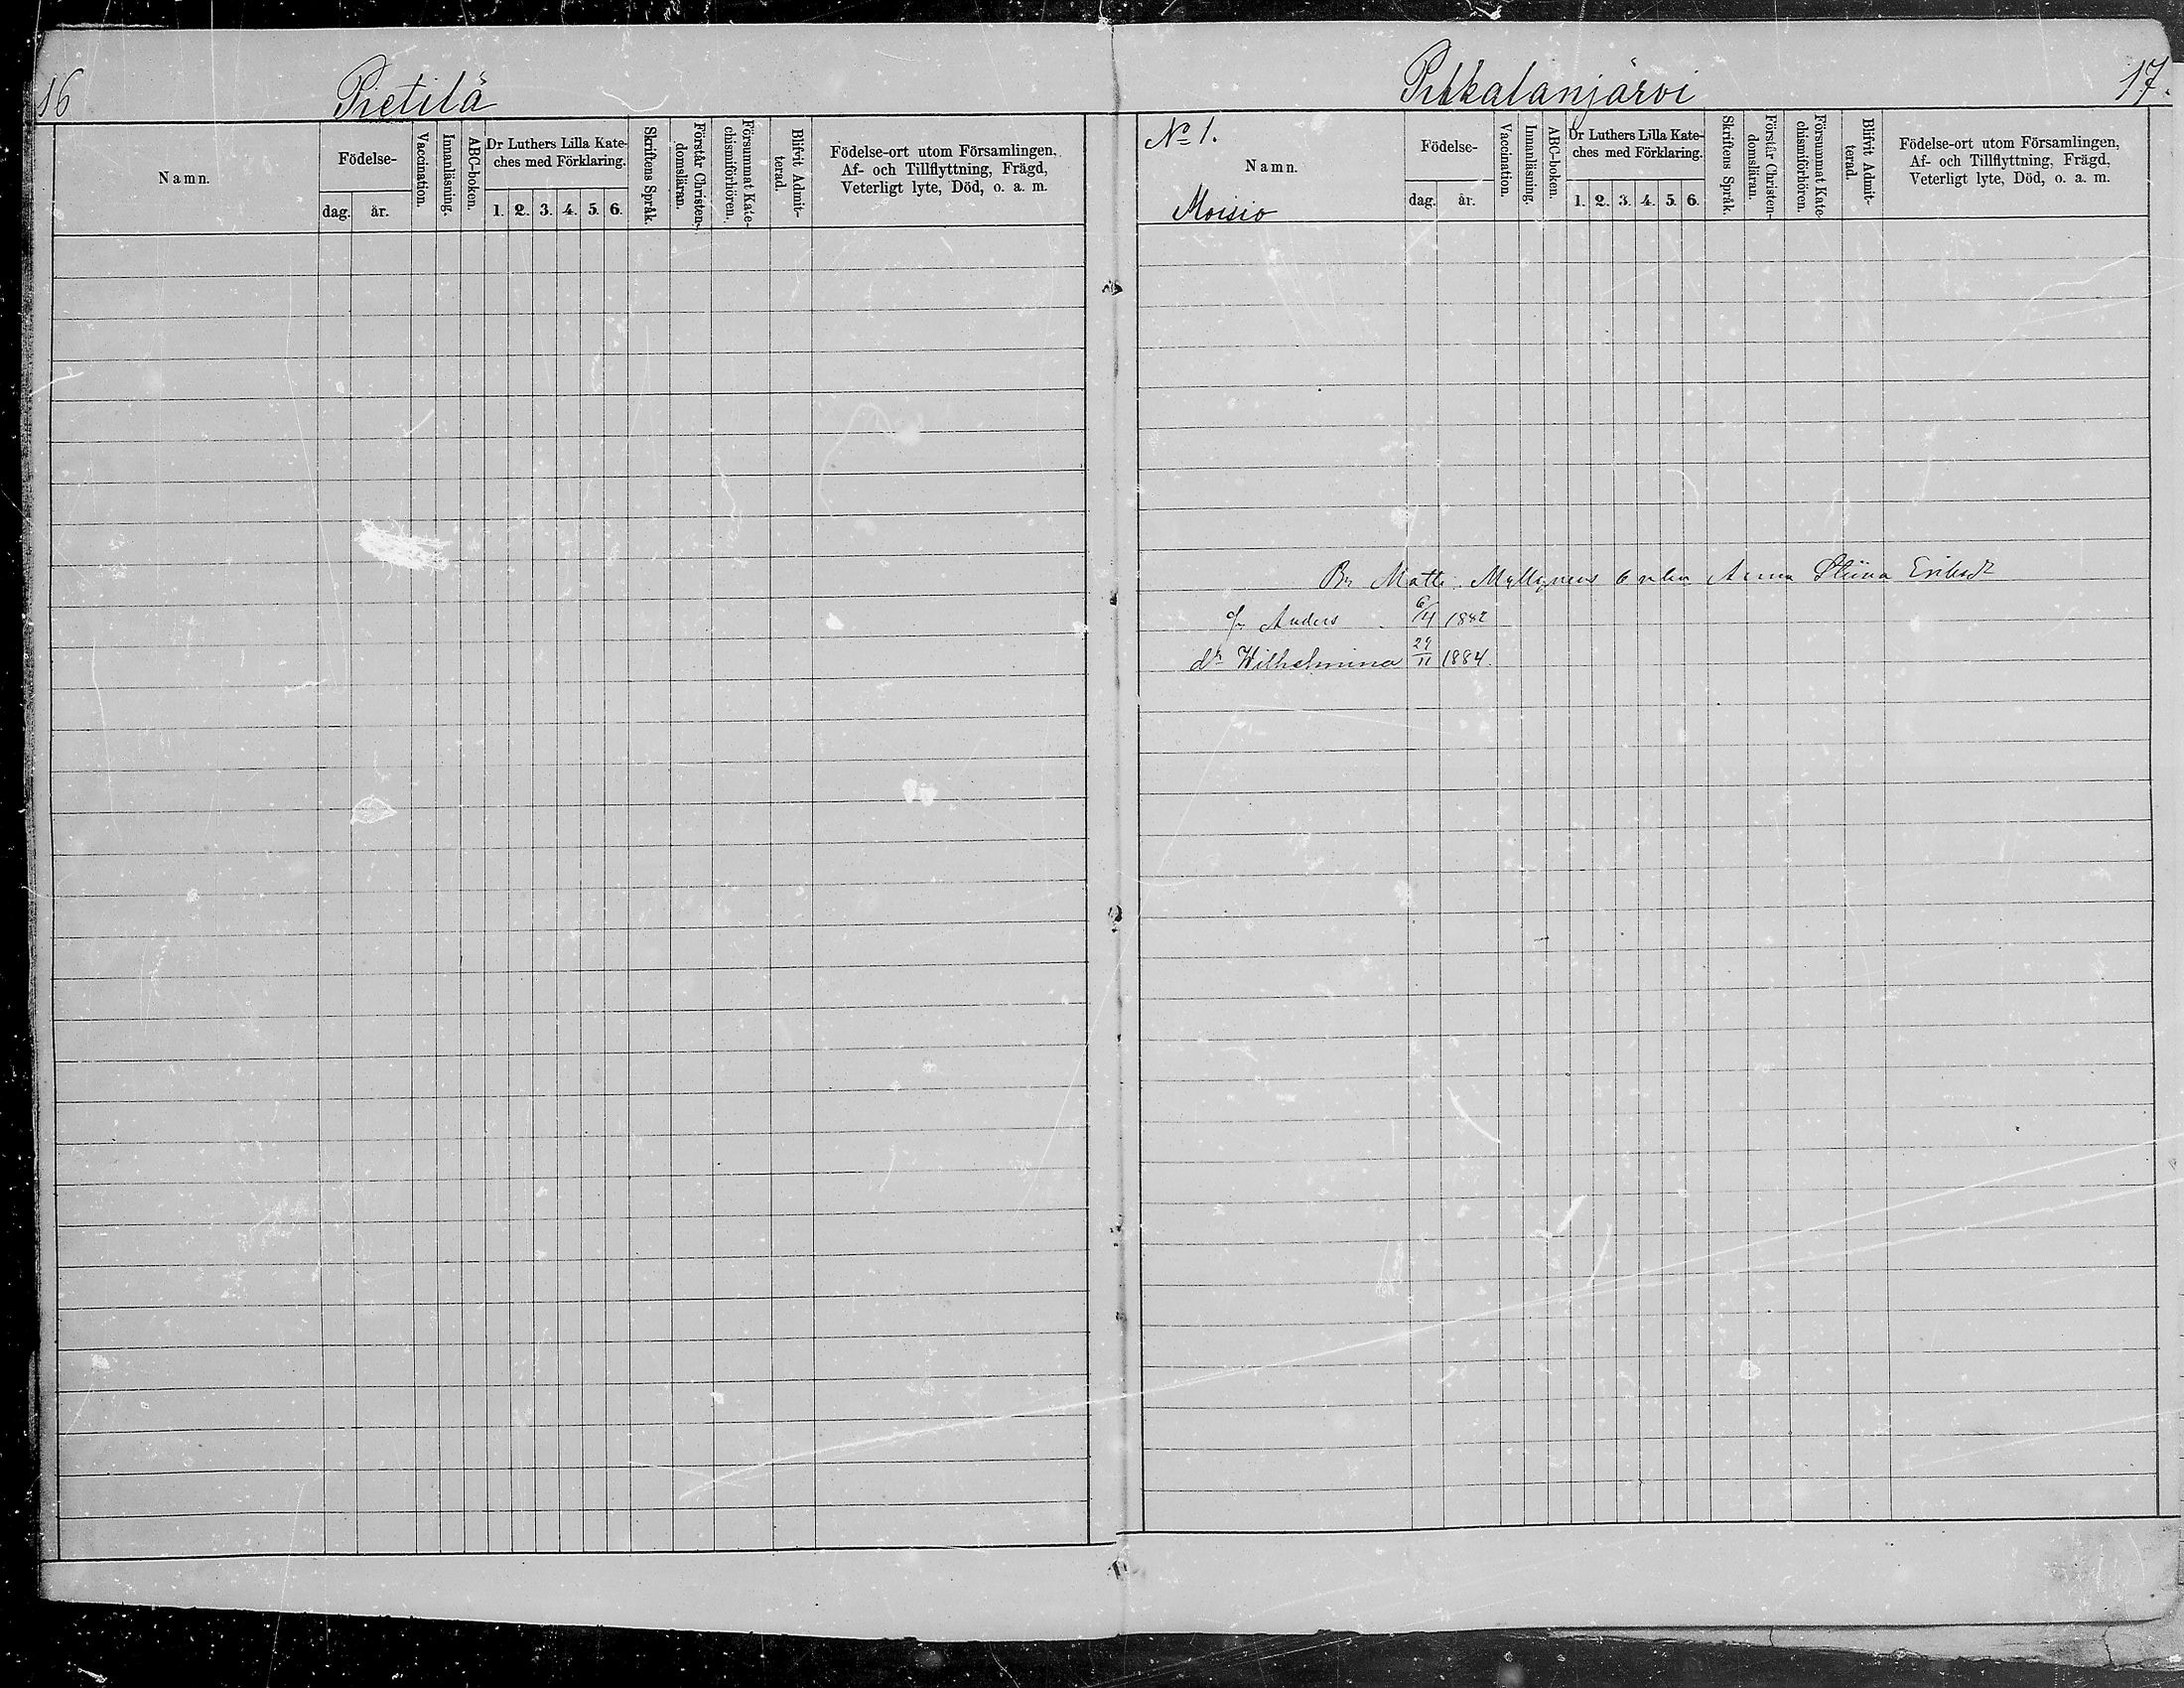 16
Pietilä
Namn.
Födelse-
dag.
år.
Vaccination.
Innanläsning.
ABC-boken.
Dr Luthers Lilla Kate-
ches med Förklaring.
1. 2. 3. 4. 5. 6.
Skriftens Språk.
Förstår Christen-
domsläran.
Försummat Kate-
chismiförhören.
Blifvit Admit-
terad.
Födelse-ort utom Församlingen,
Af- och Tillflyttning, Frägd,
Veterligt lyte, Död, o. a. m.
Pukkalanjärvi
17.
No 1.
Namn.
Moisio
Födelse-
dag.
år.
Vaccination.
Innanläsning.
ABC-boken.
Dr Luthers Lilla Kate-
ches med Förklaring.
1. 2. 3. 4. 5. 6.
Skriftens Språk.
Förstår Christen-
domsläran.
Försummat Kate-
chismiförhören.
Blifvit Admit-
terad.
Födelse-ort utom Församlingen,
Af- och Tillflyttning, Frägd,
Veterligt lyte, Död, o. a. m.
Matts Myllynens enka Anna Stiina
Anders 6/4 1842
dr Wilhelmina 29/11 1884.